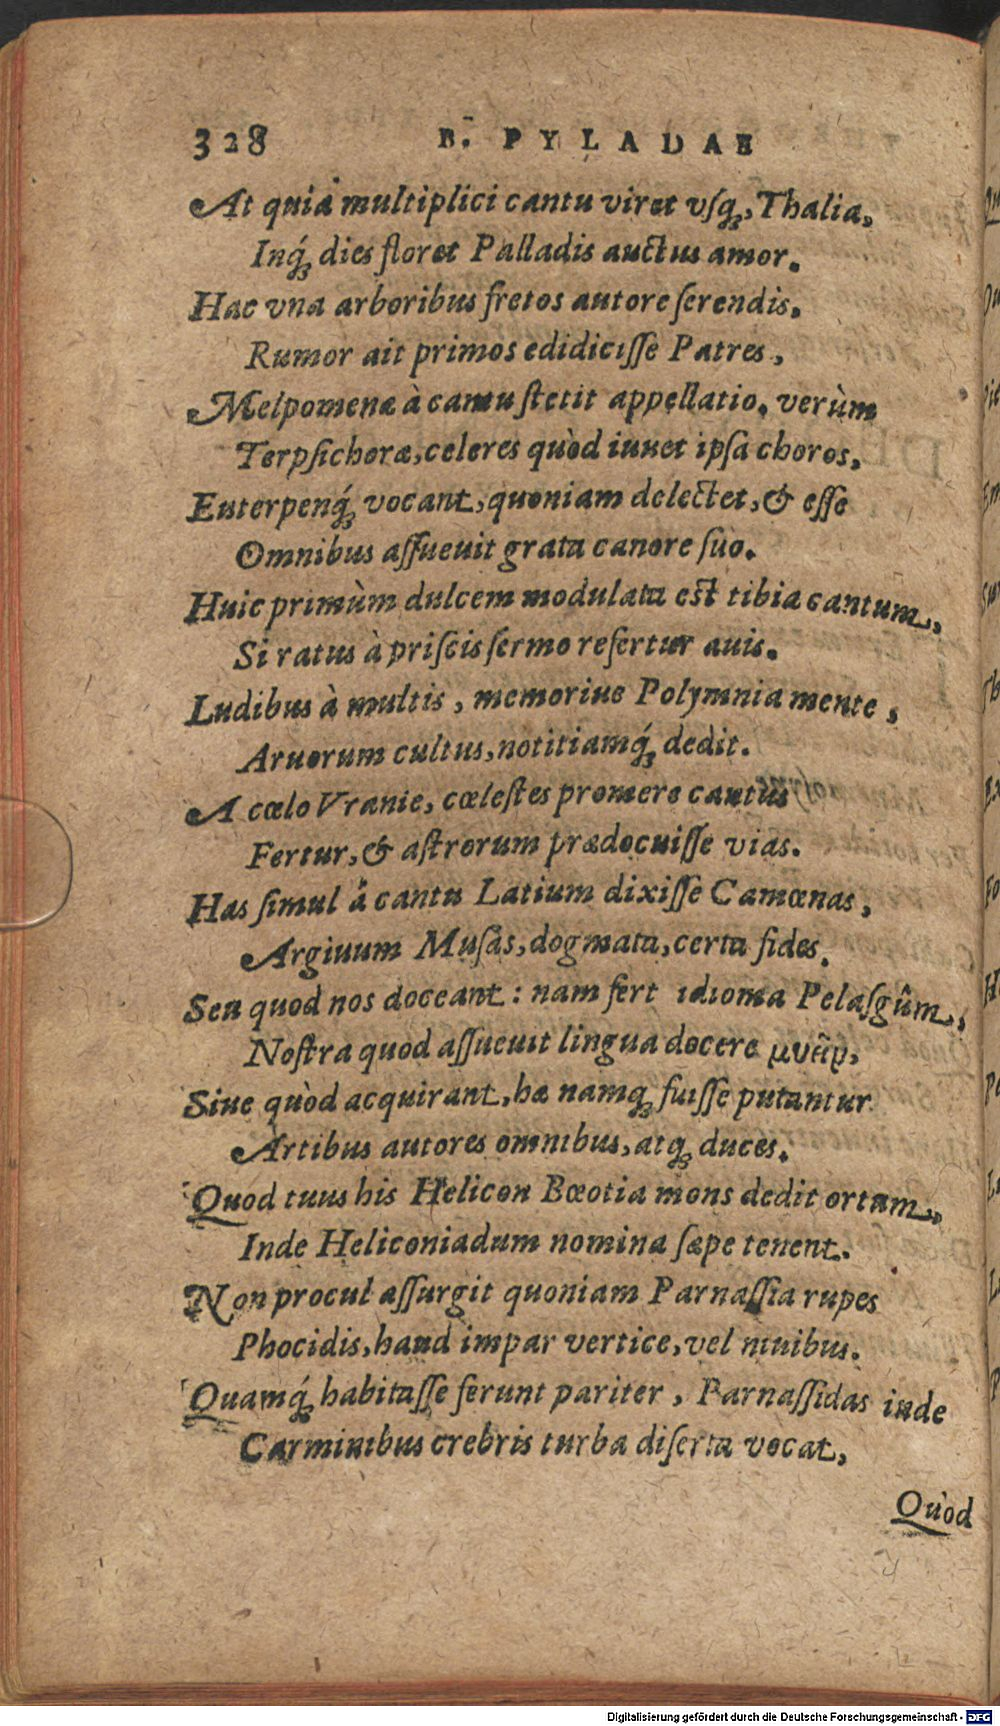 328 B. PYLADAE
At quia multiplici cantu viret vſq;, Thalia,
Inq́; dies floret Palladis auctus amor.
Hac vna arboribus fretos autore ſerendis,
Rumor ait primos edidiciſſe Patres,
Melpomenæ à cantu ſtetit appellatio, verùm
Terpſichoræ, celeres quòd iuuet ipſa choros,
Euterpenq́; vocant, quoniam delectet, & eſſe
Omnibus aſſueuit grata canore ſuo.
Huic primùm dulcem modulata eſt tibia cantum,
Si ratus à priſcis ſermo refertur auis.
Ludibus à multis, memoriue Polymnia mente,
Aruorum cultus, notitiamq́; dedit.
A cœlo Vranie, cœleſtes promere cantus
Fertur, & aſtrorum prædocuiſſe vias.
Has ſimul à cantu Latium dixiſſe Camœnas,
Argiuum Muſas, dogmata, certa fides.
Seu quod nos doceant: nam fert idioma Pelaſgûm,
Noſtra quod aſſueuit lingua docere
Siue quòd acquirant, hæ namq; fuiſſe putantur
Artibus autores omnibus, atq; duces.
Quod tuus his Helicon Bœotia mons dedit ortum,
Inde Heliconiadum nomina ſæpe tenent.
Non procul aſſurgit quoniam Parnaſſia rupes
Phocidis, haud impar vertice, vel niuibus.
Quamq́; habitaſſe ferunt pariter, Parnaſſidas inde
Carminibus crebris turba diſerta vocat,
Quòd
Digitalisierung gefördert durch die Deutsche Forschungsgemeinschaft - DFG